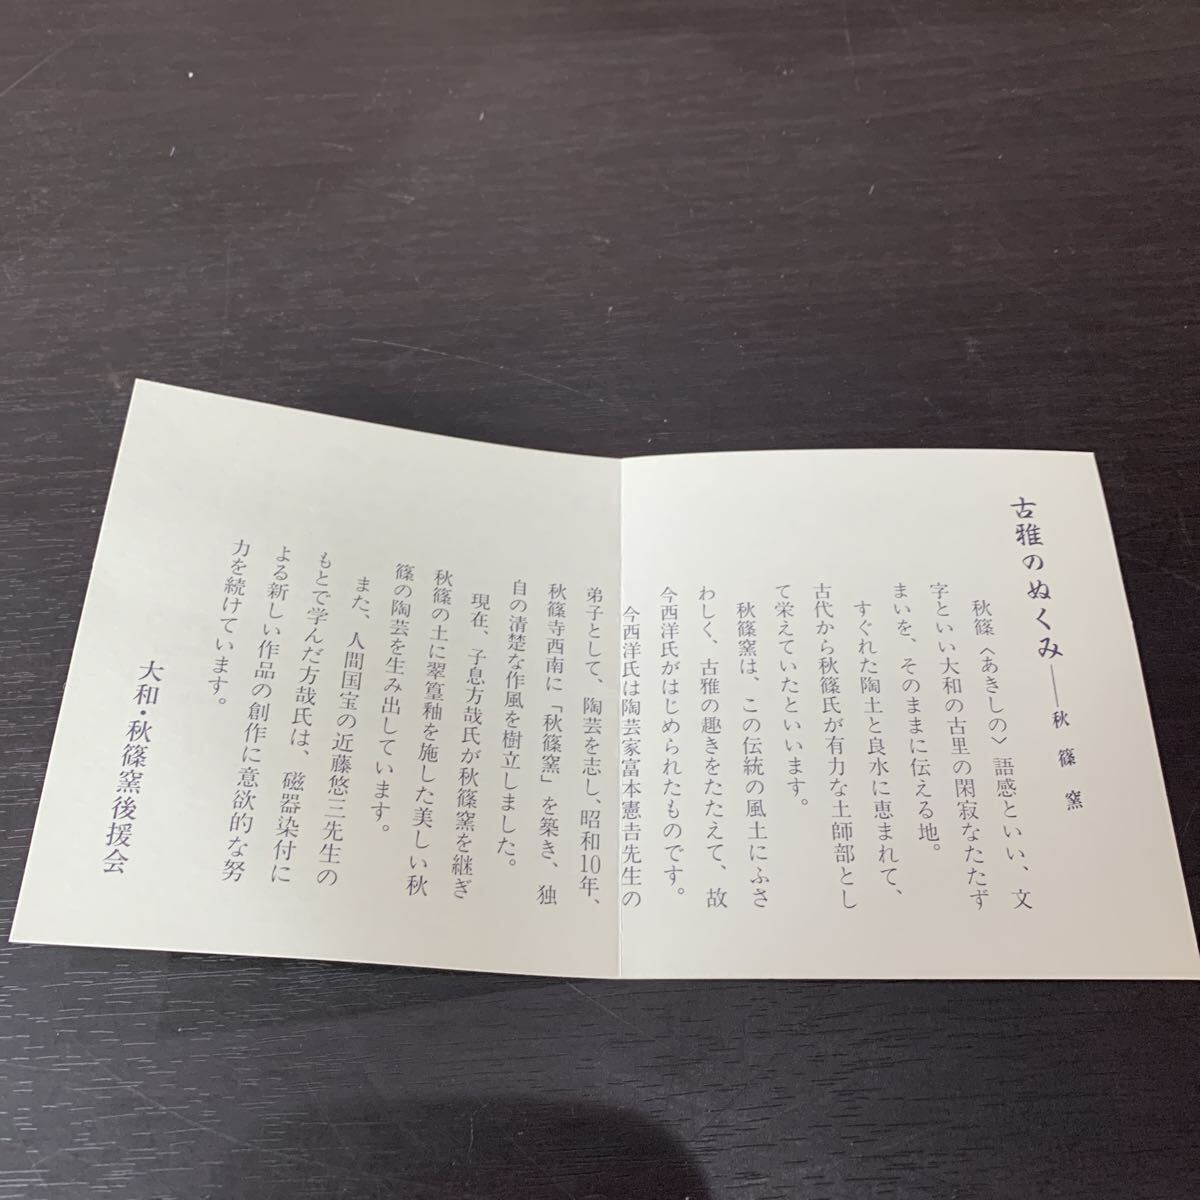 古雅のぬくみ――秋篠窯
秋篠〈あきしの〉語感といい、文
字といい大和の古里の閑寂なたたず
まいを、そのままに伝える地。
すぐれた陶土と良水に恵まれて、
古代から秋篠氏が有力な土師部とし
て栄えていたといいます。
秋篠窯は、この伝統の風土にふさ
わしく、古雅の趣きをたたえて、故
今西洋氏がはじめられたものです。
今西洋氏は陶芸家富本憲吉先生の
弟子として、陶芸を志し、昭和10年、
秋篠寺西南に「秋篠窯」を築き、独
自の清楚な作風を樹立しました。
現在、子息方哉氏が秋篠窯を継ぎ
秋篠の土に翠篁釉を施した美しい秋
篠の陶芸を生み出しています。
また、人間国宝の近藤悠三先生の
もとで学んだ方哉氏は、磁器染付に
よる新しい作品の創作に意欲的な努
力を続けています。
大和・秋篠窯後援会